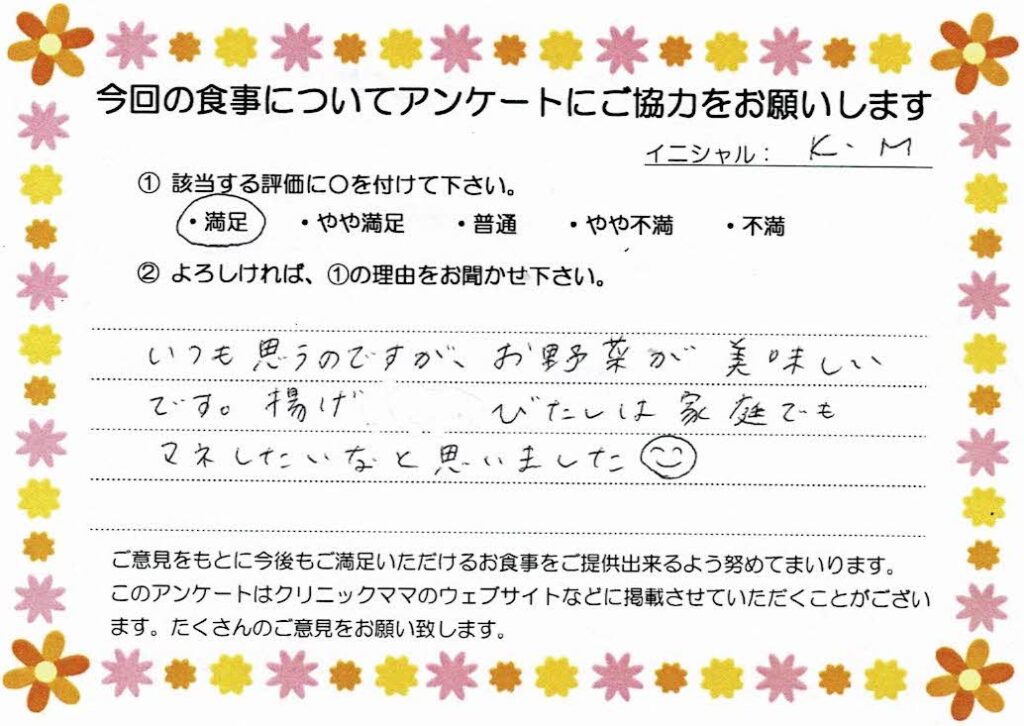 今回の食事についてアンケートにご協力をお願いします
イニシャル： K. M
① 該当する評価に〇を付けて下さい。
・満足 ・やや満足 ・普通 ・やや不満 ・不満
② よろしければ、①の理由をお聞かせ下さい。
いつも思うのですが、お野菜が美味しい
です。揚げ びたしは家庭でも
マネしたいなと思いました
ご意見をもとに今後もご満足いただけるお食事をご提供出来るよう努めてまいります。
このアンケートはクリニックママのウェブサイトなどに掲載させていただくことがござい
ます。たくさんのご意見をお願い致します。